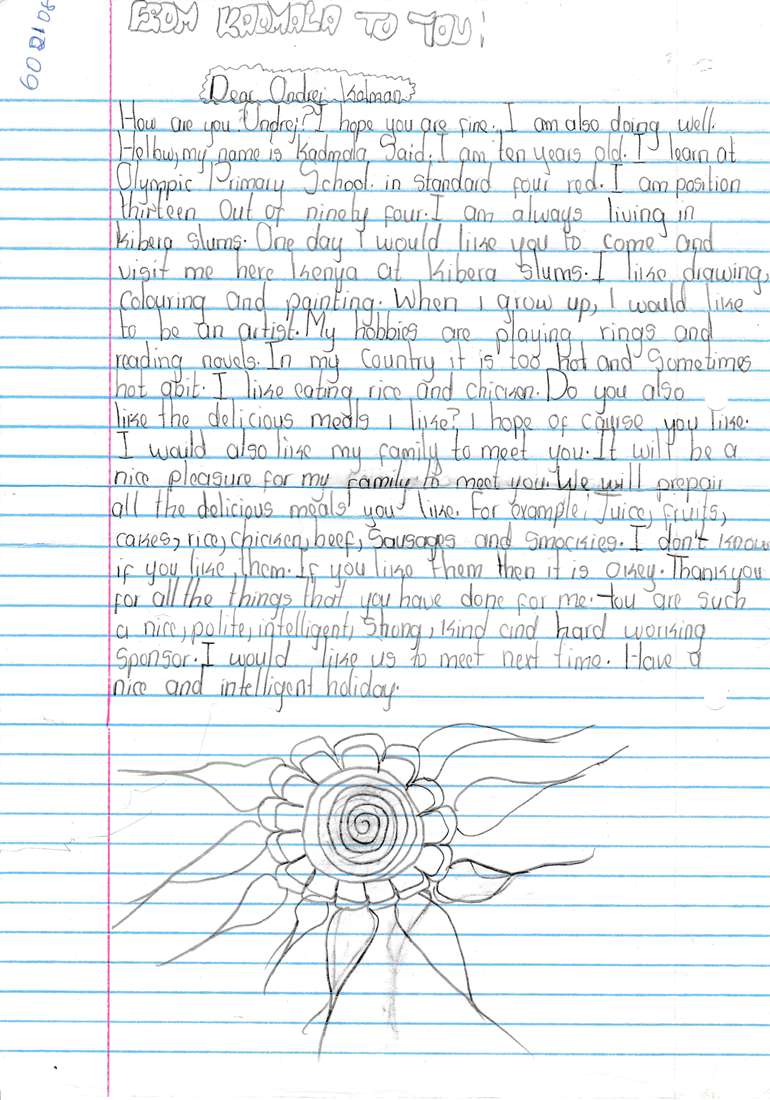 FROM KADMALA TO YOU!
Dear Ondrej Kalman
How are you Ondrej? I hope you are fine. I am also doing well.
Hellow, my name is Kadmala Said. I am ten years old. I learn at
Olympic Primary School. in standard four red. I am position
thirteen Out of ninety four. I am always living in
Kibera slums. One day I would like you to come and
visit me here Kenya at Kibera slums. I like drawing,
colouring and painting. When I grow up, I would like
to be an artist. My hobbies are playing rings and
reading novels. In my country it is too hot and Sometimes
hot abit. I like eating rice and chicken. Do you also
like the delicious meals I like? I hope of course you like.
I would also like my family to meet you. It will be a
nice pleasure for my family to meet you. We will prepair
all the delicious meals you like. For example, Juice, fruits,
cakes, rice, chicken, beef, Sausages and smockies. I don't know
if you like them. If you like them then it is Okey. Thankyou
for all the things that you have done for me. You are such
a nice, polite, intelligent, Strong, kind and hard working
Sponsor. I would like us to meet next time. Have a
nice and intelligent holiday.